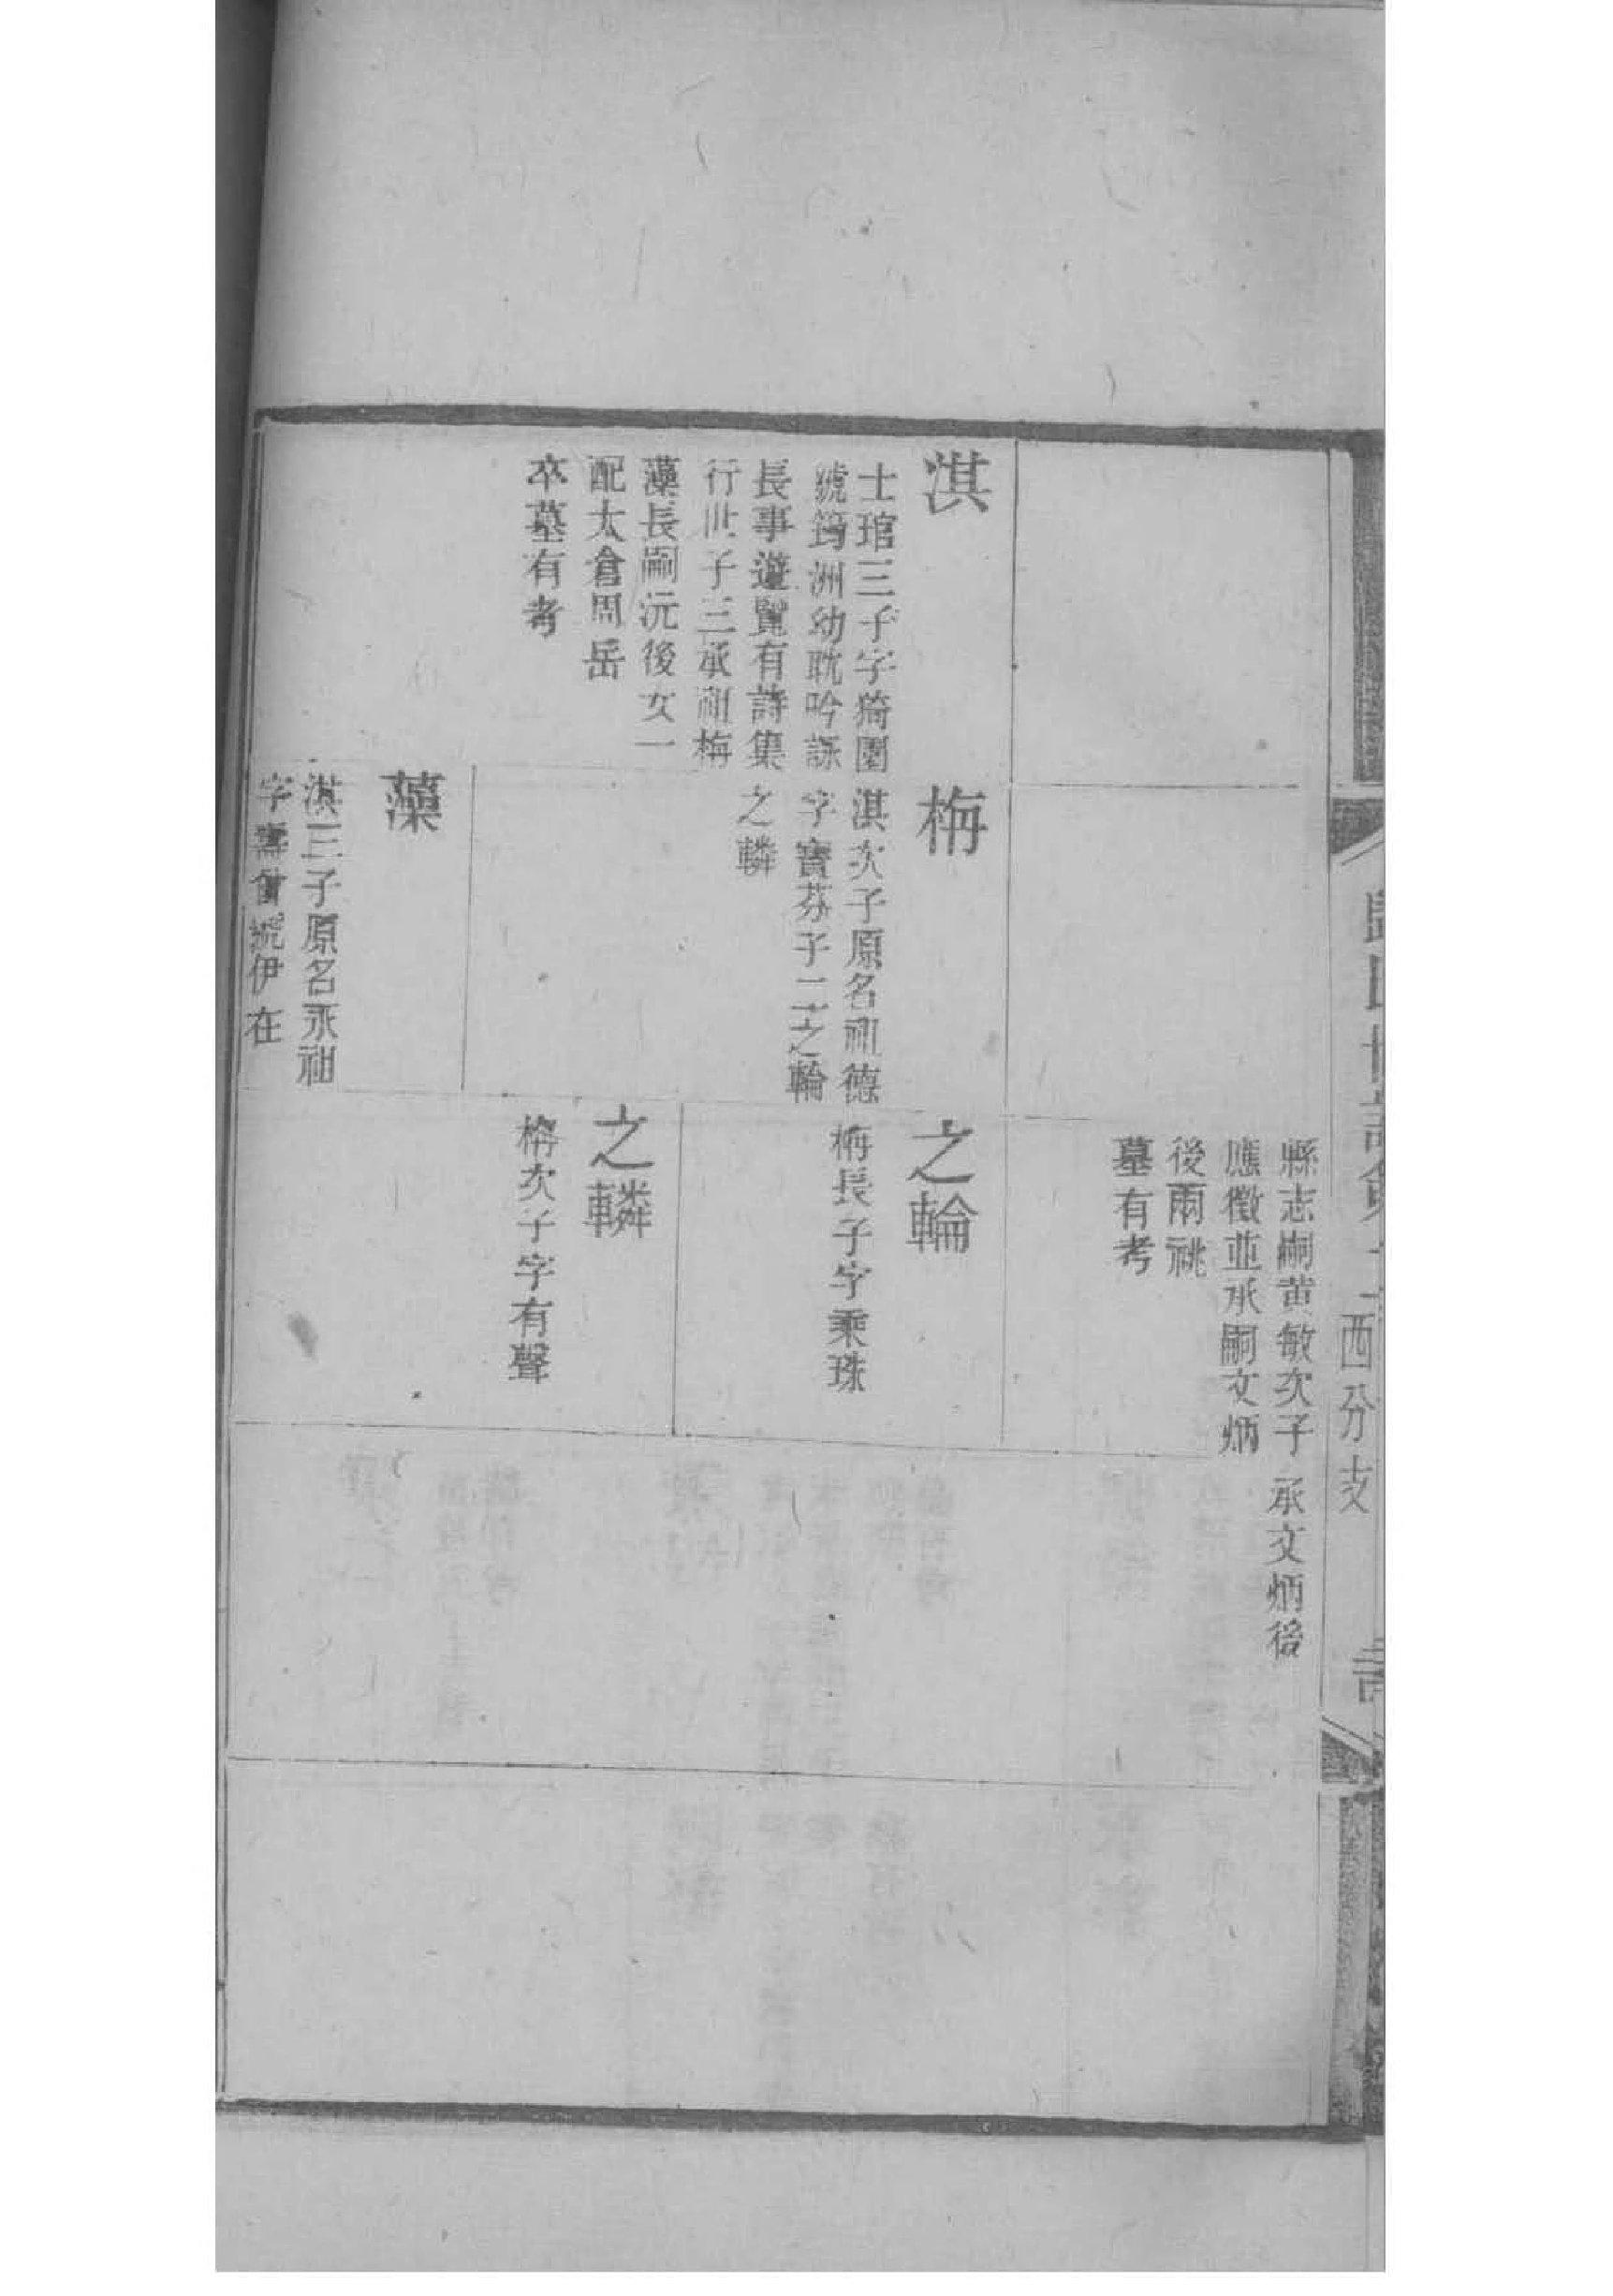 西分支
縣志嗣黃敏次子
應徵並承嗣文炳
後兩祧
墓有考
承文炳後
淇
士琯三子字猗園
號筠洲幼耽吟詠
長事遊覽有詩集
行世子三承祖栴
藻長嗣沅後女一
配太倉周岳
卒墓有考
栴
淇次子原名祖德
字寶芬子二之輪
之轔
之輪
栴長子字乘珠
之轔
栴次子字有聲
藻
淇三子原名永祖
字壽曾號伊在